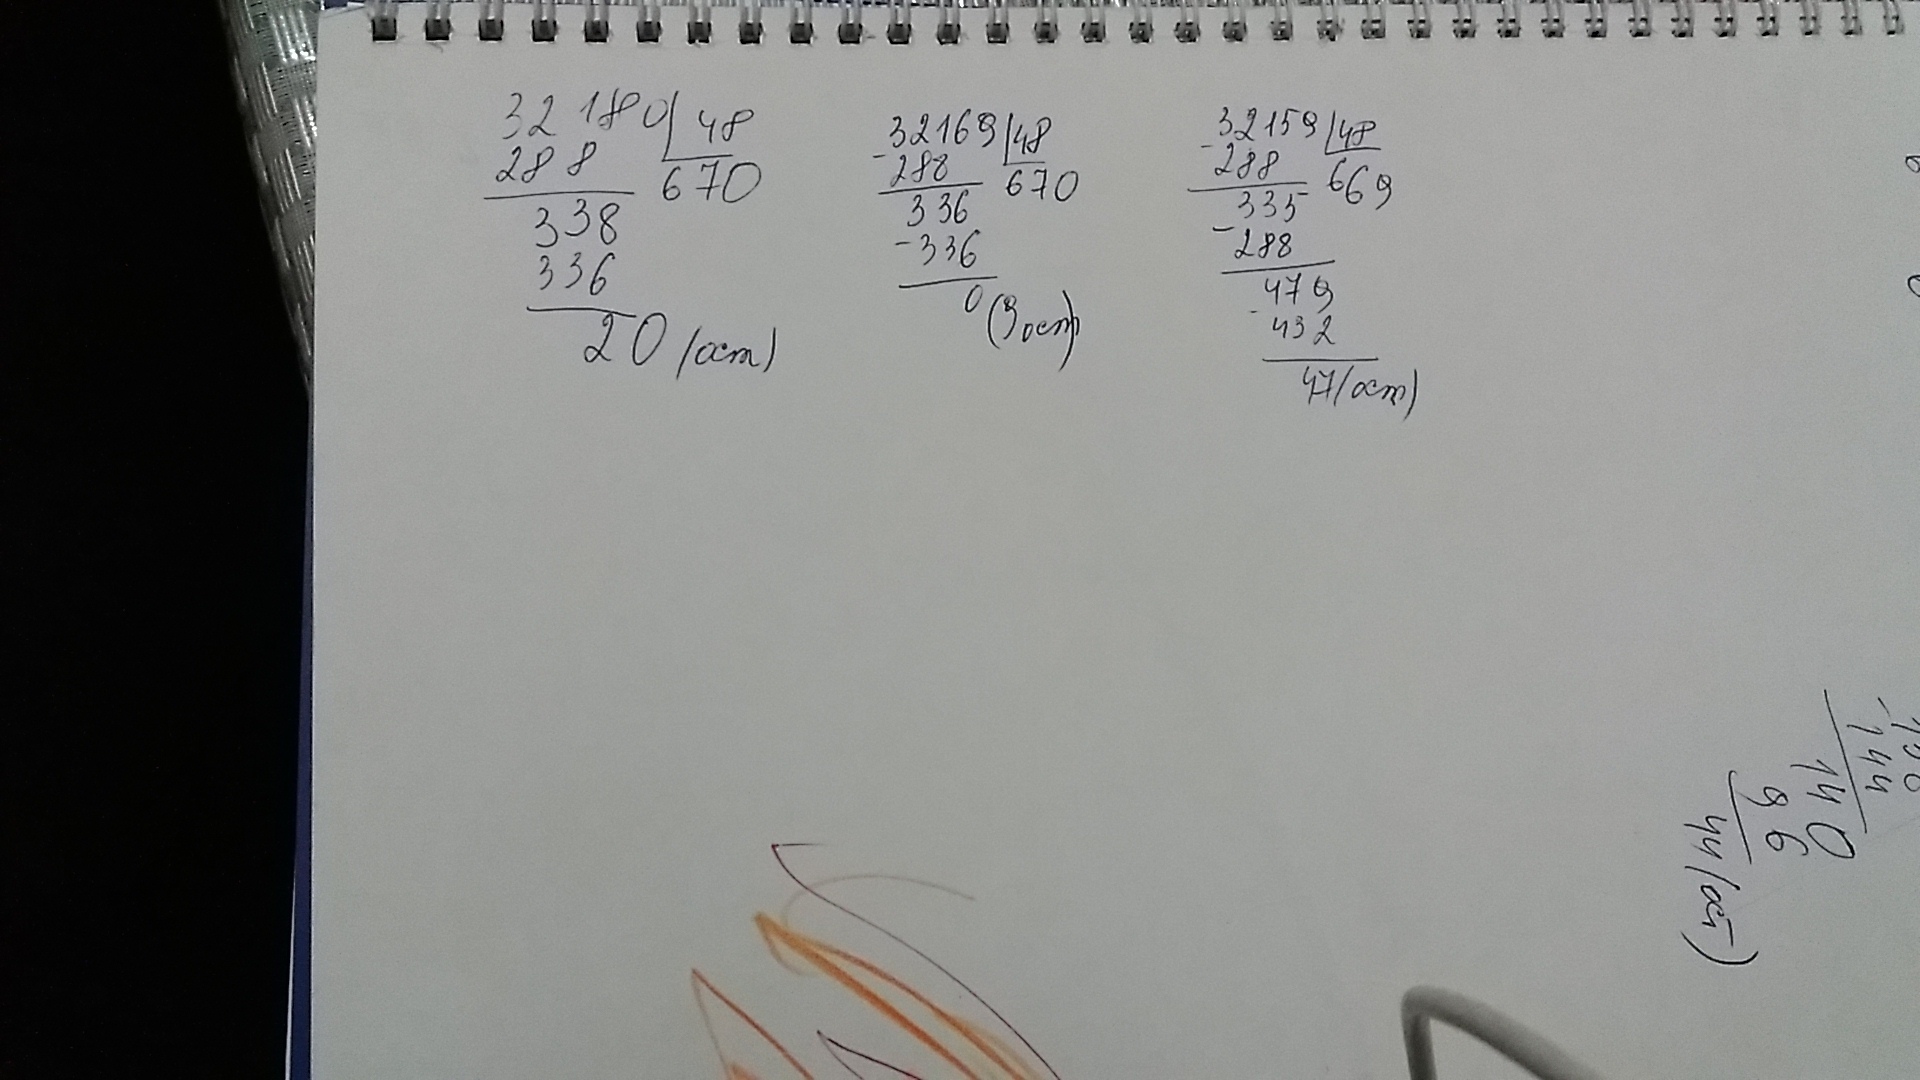 32180 48
288 670
338
336
20 (ост)
-32169 48
288 670
336
-336
0 (9 ост)
-32159 48
288 669
335
-288
479
-432
47 (ост)
144
140
96
44 (ост)